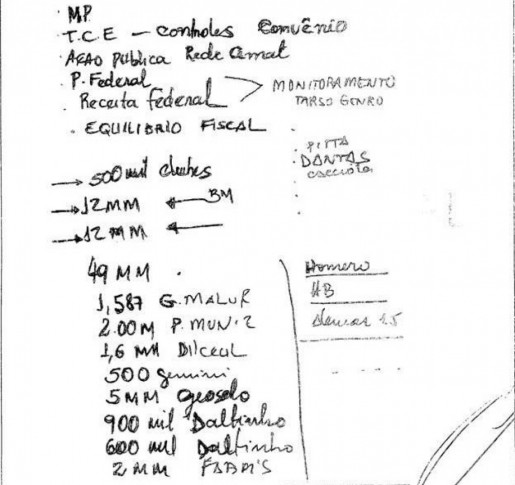 · MP
· T.C.E - controles Convênio
· AÇÃO PÚBLICA Rede Cemat
· P. Federal
· Receita federal
MONITORAMENTO
TARSO GENRO
· EQUILIBRIO FISCAL
· PITTA
· DANTAS
cacciola
→ 500 mil
→ 12 MM ← BM
→ 12 MM ←
49 MM .
1,587 G. MALUF
2.00 M P. MUNIZ
1,6 MM Dilceul
500 gemini
5 MM Geosolo
900 mil Daltinho
600 mil Daltinho
2 MM FSADM'S
Homero
HB